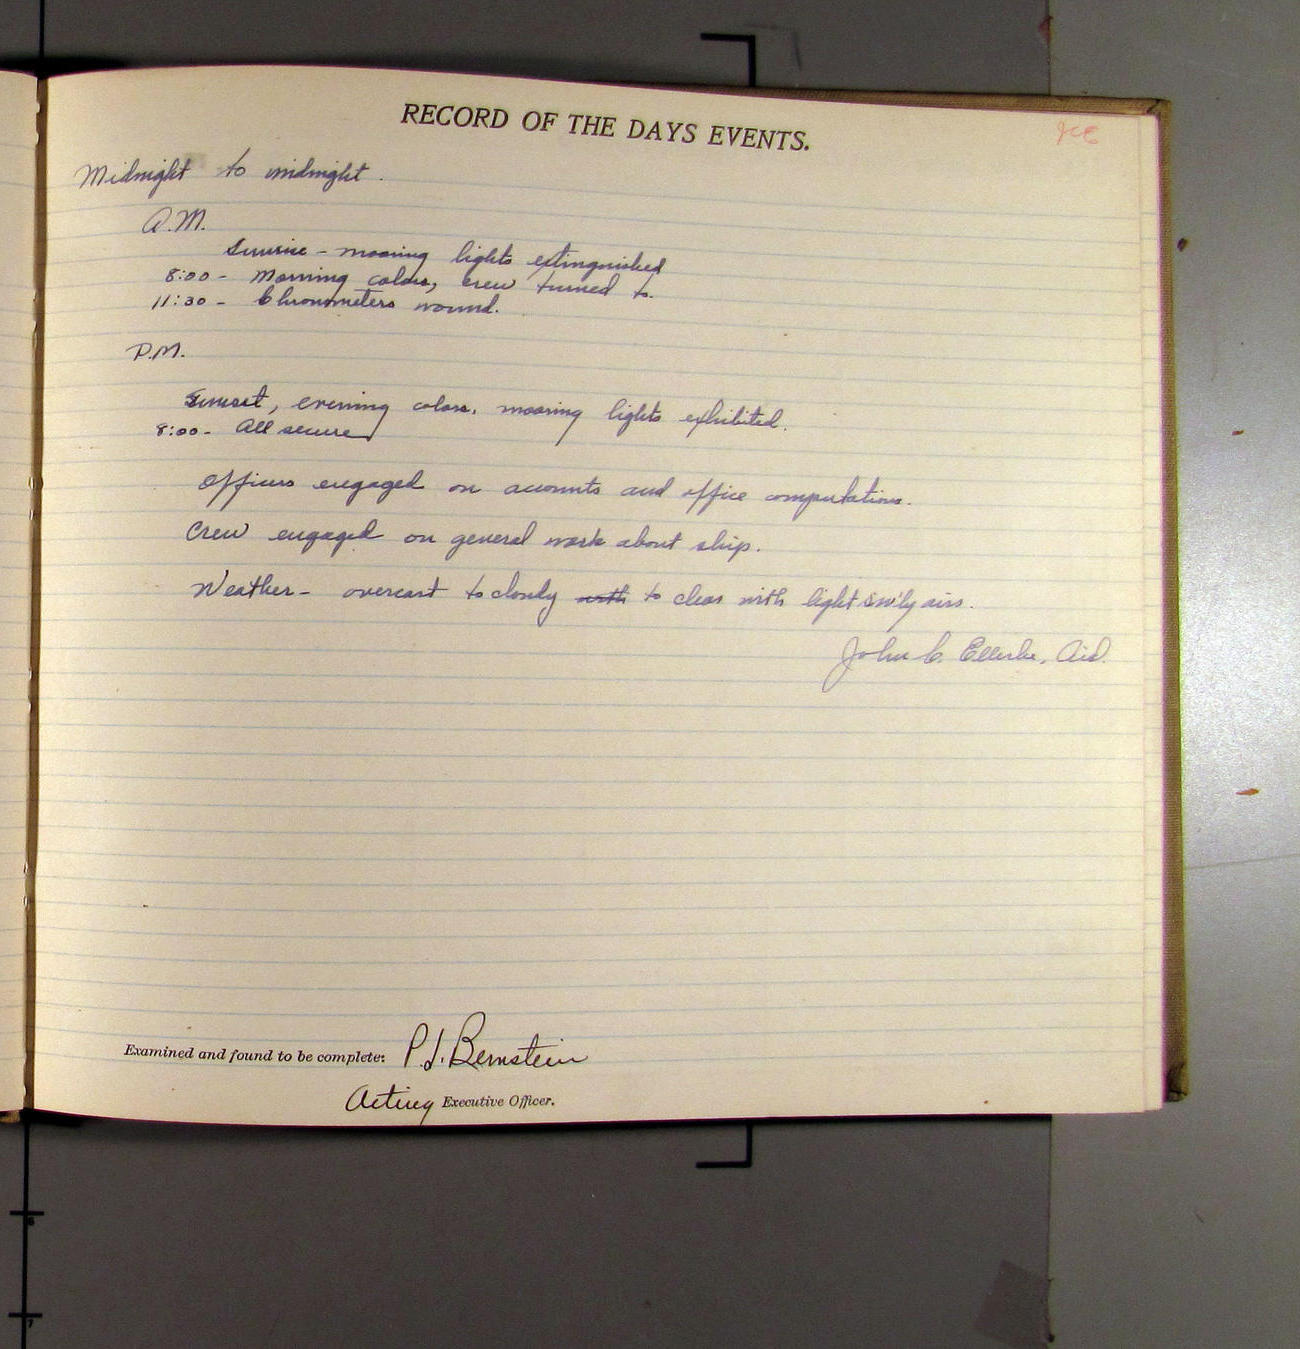 RECORD OF THE DAYS EVENTS.
JCE
Midnight to midnight.
A.M.
Sunrise - mooring lights extinguished
8:00 - Morning colors, crew turned to.
11:30 - Chronometers wound.
P.M.
Sunset, evening colors, mooring lights exhibited.
8:00 - All secure
Officers engaged on accounts and office computations.
Crew engaged on general work about ship.
Weather - overcast to cloudy with to clear with light sw'ly airs.
John C. Ellerbe, Aid.
Examined and found to be complete: P.L. Bernstein
Acting Executive Officer.
6
7